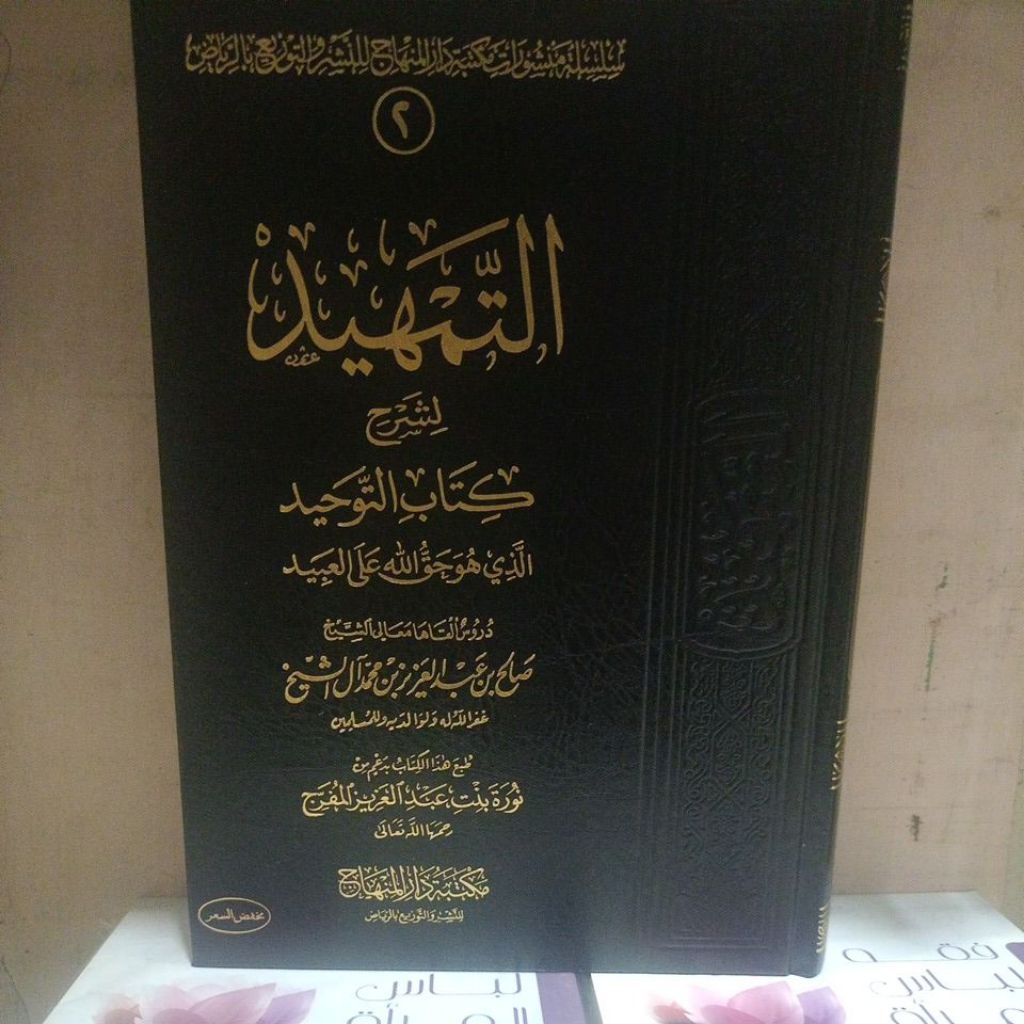 سِلسِلَة مَنشُورَات مَكتَبَة دَار المِنهَاج لِلنَّشر وَالتَّوزِيع بِالرِّيَاض
٢
التَّمْهِيد
لِشَرْحِ
كِتَابِ التَّوحِيد
الَّذِي هُوَ حَقُّ اللهِ عَلَى العَبِيد
دُرُوسٌ أَلقَاهَا مَعَالي الشَّيْخ
صَالح بن عَبد العَزيز بن مُحمّد آل الشّيخ
غفر الله له ولوالديه وللمسلمين
طُبعَ هَذا الكِتَابُ بدَعْمٍ مِن
نُورَة بِنْتِ عَبْدِ العَزِيزِ المُفَرِّج
رحمها الله تعالى
مَكتَبَة دَار المِنهَاج
لِلنَّشر وَالتَّوزيع بالرِّيَاض
مخفض السعر
لباس
المرأة
فقه
لباس
المرأة